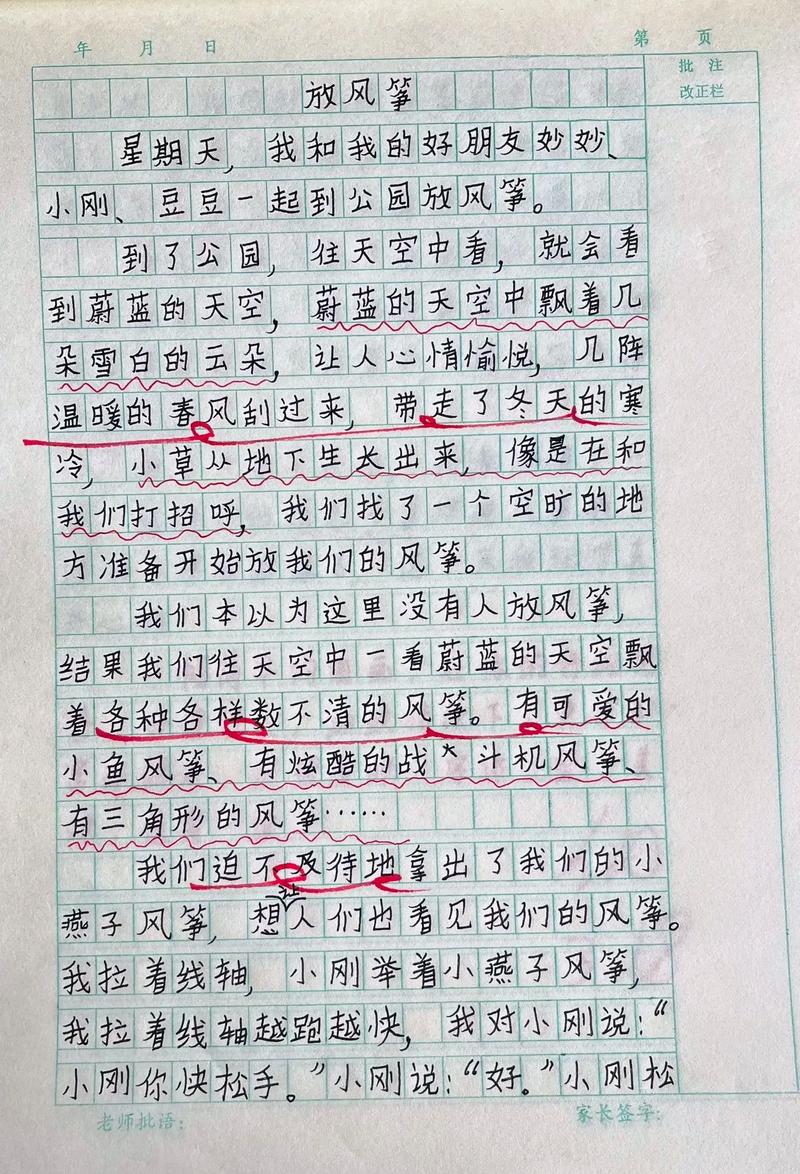 年 月 日 第 页
批 注
改正栏
放风筝
星期天，我和我的好朋友妙妙、
小刚、豆豆一起到公园放风筝。
到了公园，往天空中看，就会看
到蔚蓝的天空，蔚蓝的天空中飘着几
朵雪白的云朵，让人心情愉悦，几阵
温暖的春风刮过来，带走了冬天的寒
冷，小草从地下生长出来，像是在和
我们打招呼，我们找了一个空旷的地
方准备开始放我们的风筝。
我们本以为这里没有人放风筝，
结果我们往天空中一看蔚蓝的天空飘
着各种各样数不清的风筝。有可爱的
小鱼风筝、有炫酷的战斗机风筝、
有三角形的风筝……
我们迫不及待地拿出了我们的小
燕子风筝，想让人们也看见我们的风筝。
我拉着线轴，小刚举着小燕子风筝，
我拉着线轴越跑越快，我对小刚说：“
小刚你快松手。”小刚说：“好。”小刚松
老师批语： 家长签字：